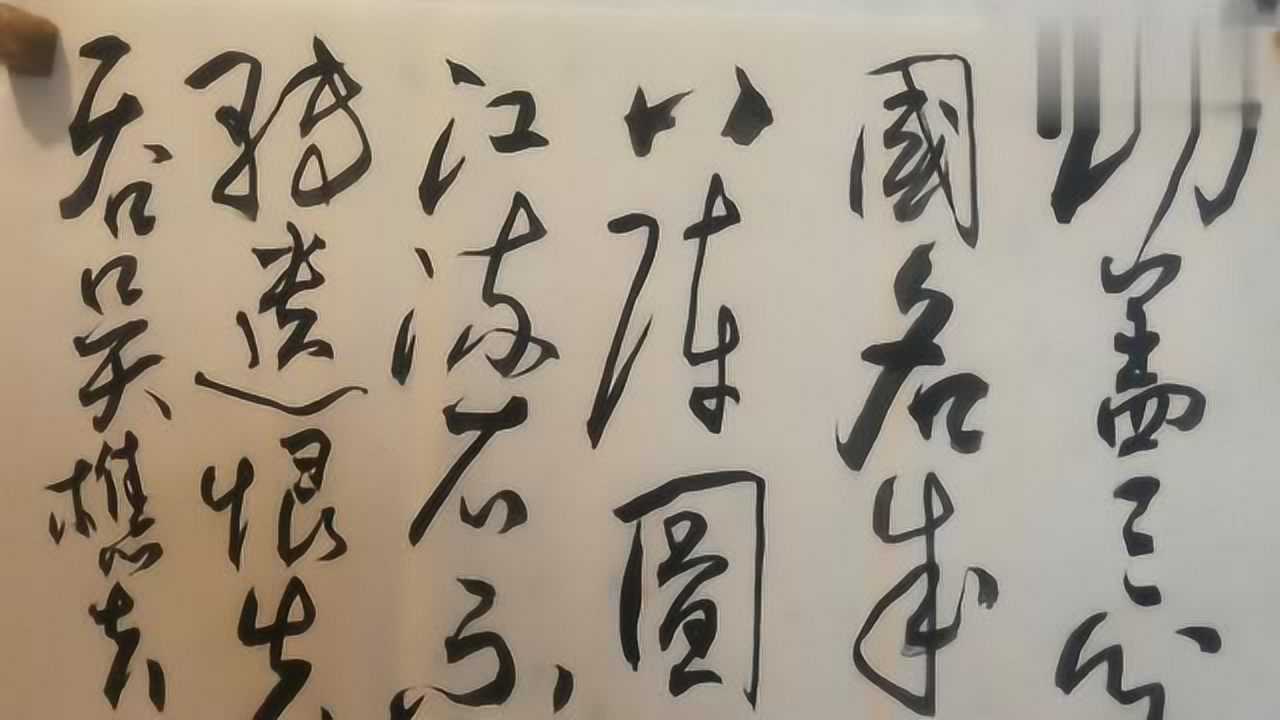 功盖三分
國名成
八陣圖
江流石不
轉遺恨失
吞吴樵夫